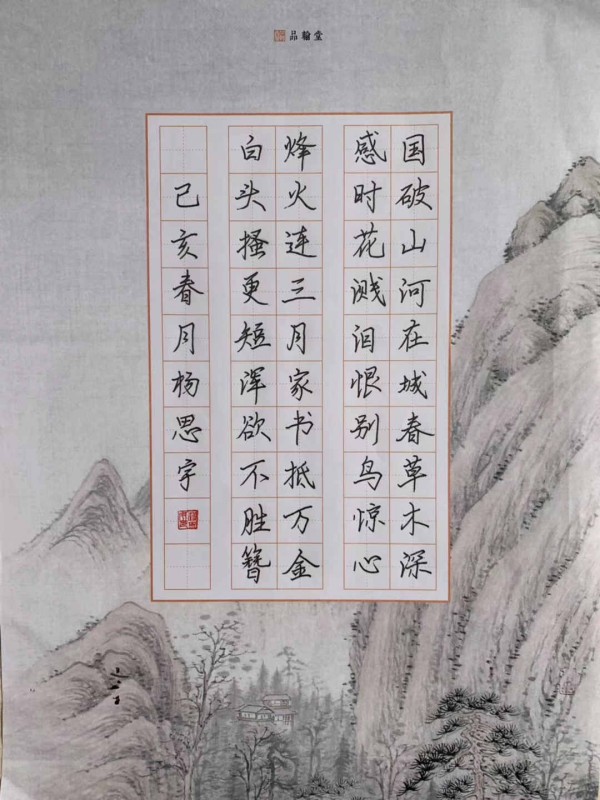 品翰堂
国破山河在城春草木深
感时花溅泪恨别鸟惊心
烽火连三月家书抵万金
白头搔更短浑欲不胜簪
己亥春月杨思宇